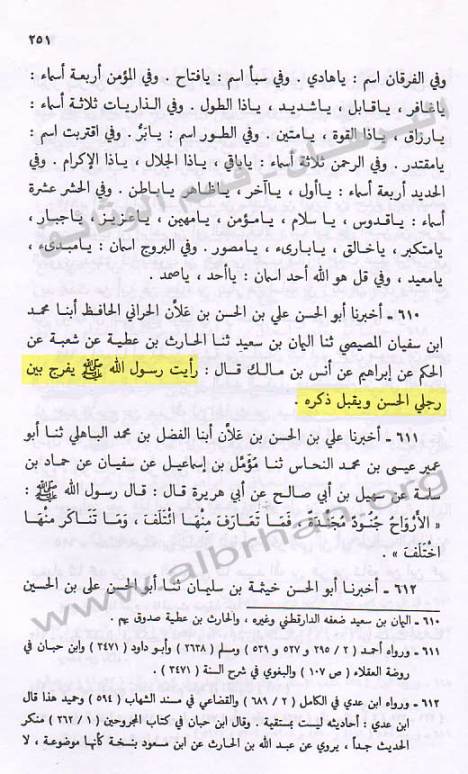 ٢٥١
وفي الفرقان اسم : ياهادي . وفي سبأ اسم : يافتاح . وفي المؤمن أربعة أسماء :
ياغافر ، ياقابل ، ياشديد ، ياذا الطول . وفي الذاريات ثلاثة أسماء :
يارزاق ، ياذا القوة ، يامتين . وفي الطور اسم : يابَرُّ . وفي اقتربت اسم :
يامقتدر . وفي الرحمن ثلاثة أسماء : ياباقي ، ياذا الجلال ، ياذا الإكرام . وفي
الحديد أربعة أسماء : ياأول ، ياآخر ، ياظاهر ياباطن . وفي الحشر عشرة
أسماء : ياقدوس ، يا سلام ، يامؤمن ، يامهيمن ، ياعزيز ، ياجبار ،
يامتكبر ، ياخالق ، يابارىء ، يامصور . وفي البروج اسمان : يامبدىء ،
يامعيد ، وفي قل هو الله أحد اسمان : ياأحد ، ياصمد .
٦١٠ - أخبرنا أبو الحسن علي بن الحسن بن عَلاَّن الحراني الحافظ أبنا محمد
ابن سفيان المصيصي ثنا اليمان بن سعيد ثنا الحارث بن عطية عن شعبة عن
الحكم عن إبراهيم عن أنس بن مالك قال : رأيت رسول الله ﷺ يفرج بين
رجلي الحسن ويقبل ذكره .
٦١١ - أخبرنا علي بن الحسن بن عَلاَّن أبنا الفضل بن محمد الباهلي ثنا أبو
عمير عيسى بن محمد النحاس ثنا مُؤَمَّل بن إسماعيل عن سفيان عن حماد بن
سلمة عن سهيل بن أبي صالح عن أبي هريرة قال : قال رسول الله ﷺ :
« الأَرْوَاحُ جُنُودٌ مُجَنَّدَةٌ ، فَمَا تَعَارَفَ مِنْهَا ائْتَلَفَ ، وَمَا تَنَاكَرَ مِنْهَا
اخْتَلَفَ » .
٦١٢ - أخبرنا أبو الحسن خيثمة بن سليمان ثنا أبو الحسن علي بن الحسين
٦١٠ - اليمان بن سعيد ضعفه الدارقطني وغيره ، والحارث بن عطية صدوق يهم .
٦١١ - ورواه أحمد ( ٢ / ٢٩٥ و ٥٢٧ و ٥٣٩ ) ومسلم ( ٢٦٣٨ ) وأبو داود ( ٣٤٧١ ) وابن حبان في
روضة العقلاء ( ص ١٠٧ ) والبغوي في شرح السنة ( ٣٤٧١ ) .
٦١٢ - ورواه ابن عدي في الكامل ( ٢ / ٦٨٦ ) والقضاعي في مسند الشهاب ( ٥٩٤ ) وحميد هذا قال
ابن عدي : أحاديثه ليست بمستقيمة . وقال ابن حبان في كتاب المجروحين ( ١ / ٢٦٢ ) منكر
الحديث جداً ، يروي عن عبد الله بن الحارث عن ابن مسعود بنسخة كأنها موضوعة ، لا
www.albrhan.org